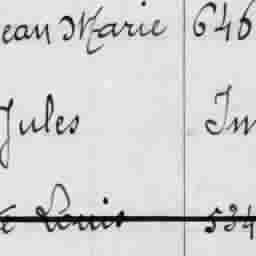 ean Marie 646
Jules Im
é Louis 534